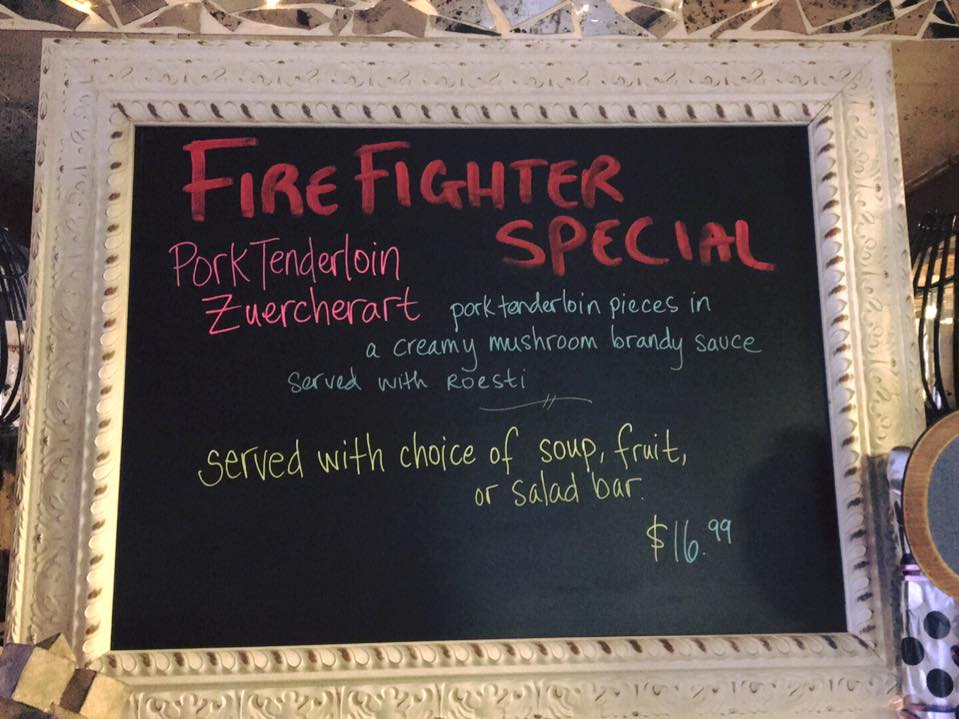 FIRE FIGHTER
SPECIAL
Pork Tenderloin
Zuercherart
pork tenderloin pieces in
a creamy mushroom brandy sauce
served with Roesti
served with choice of soup, fruit,
or salad bar.
$16.99